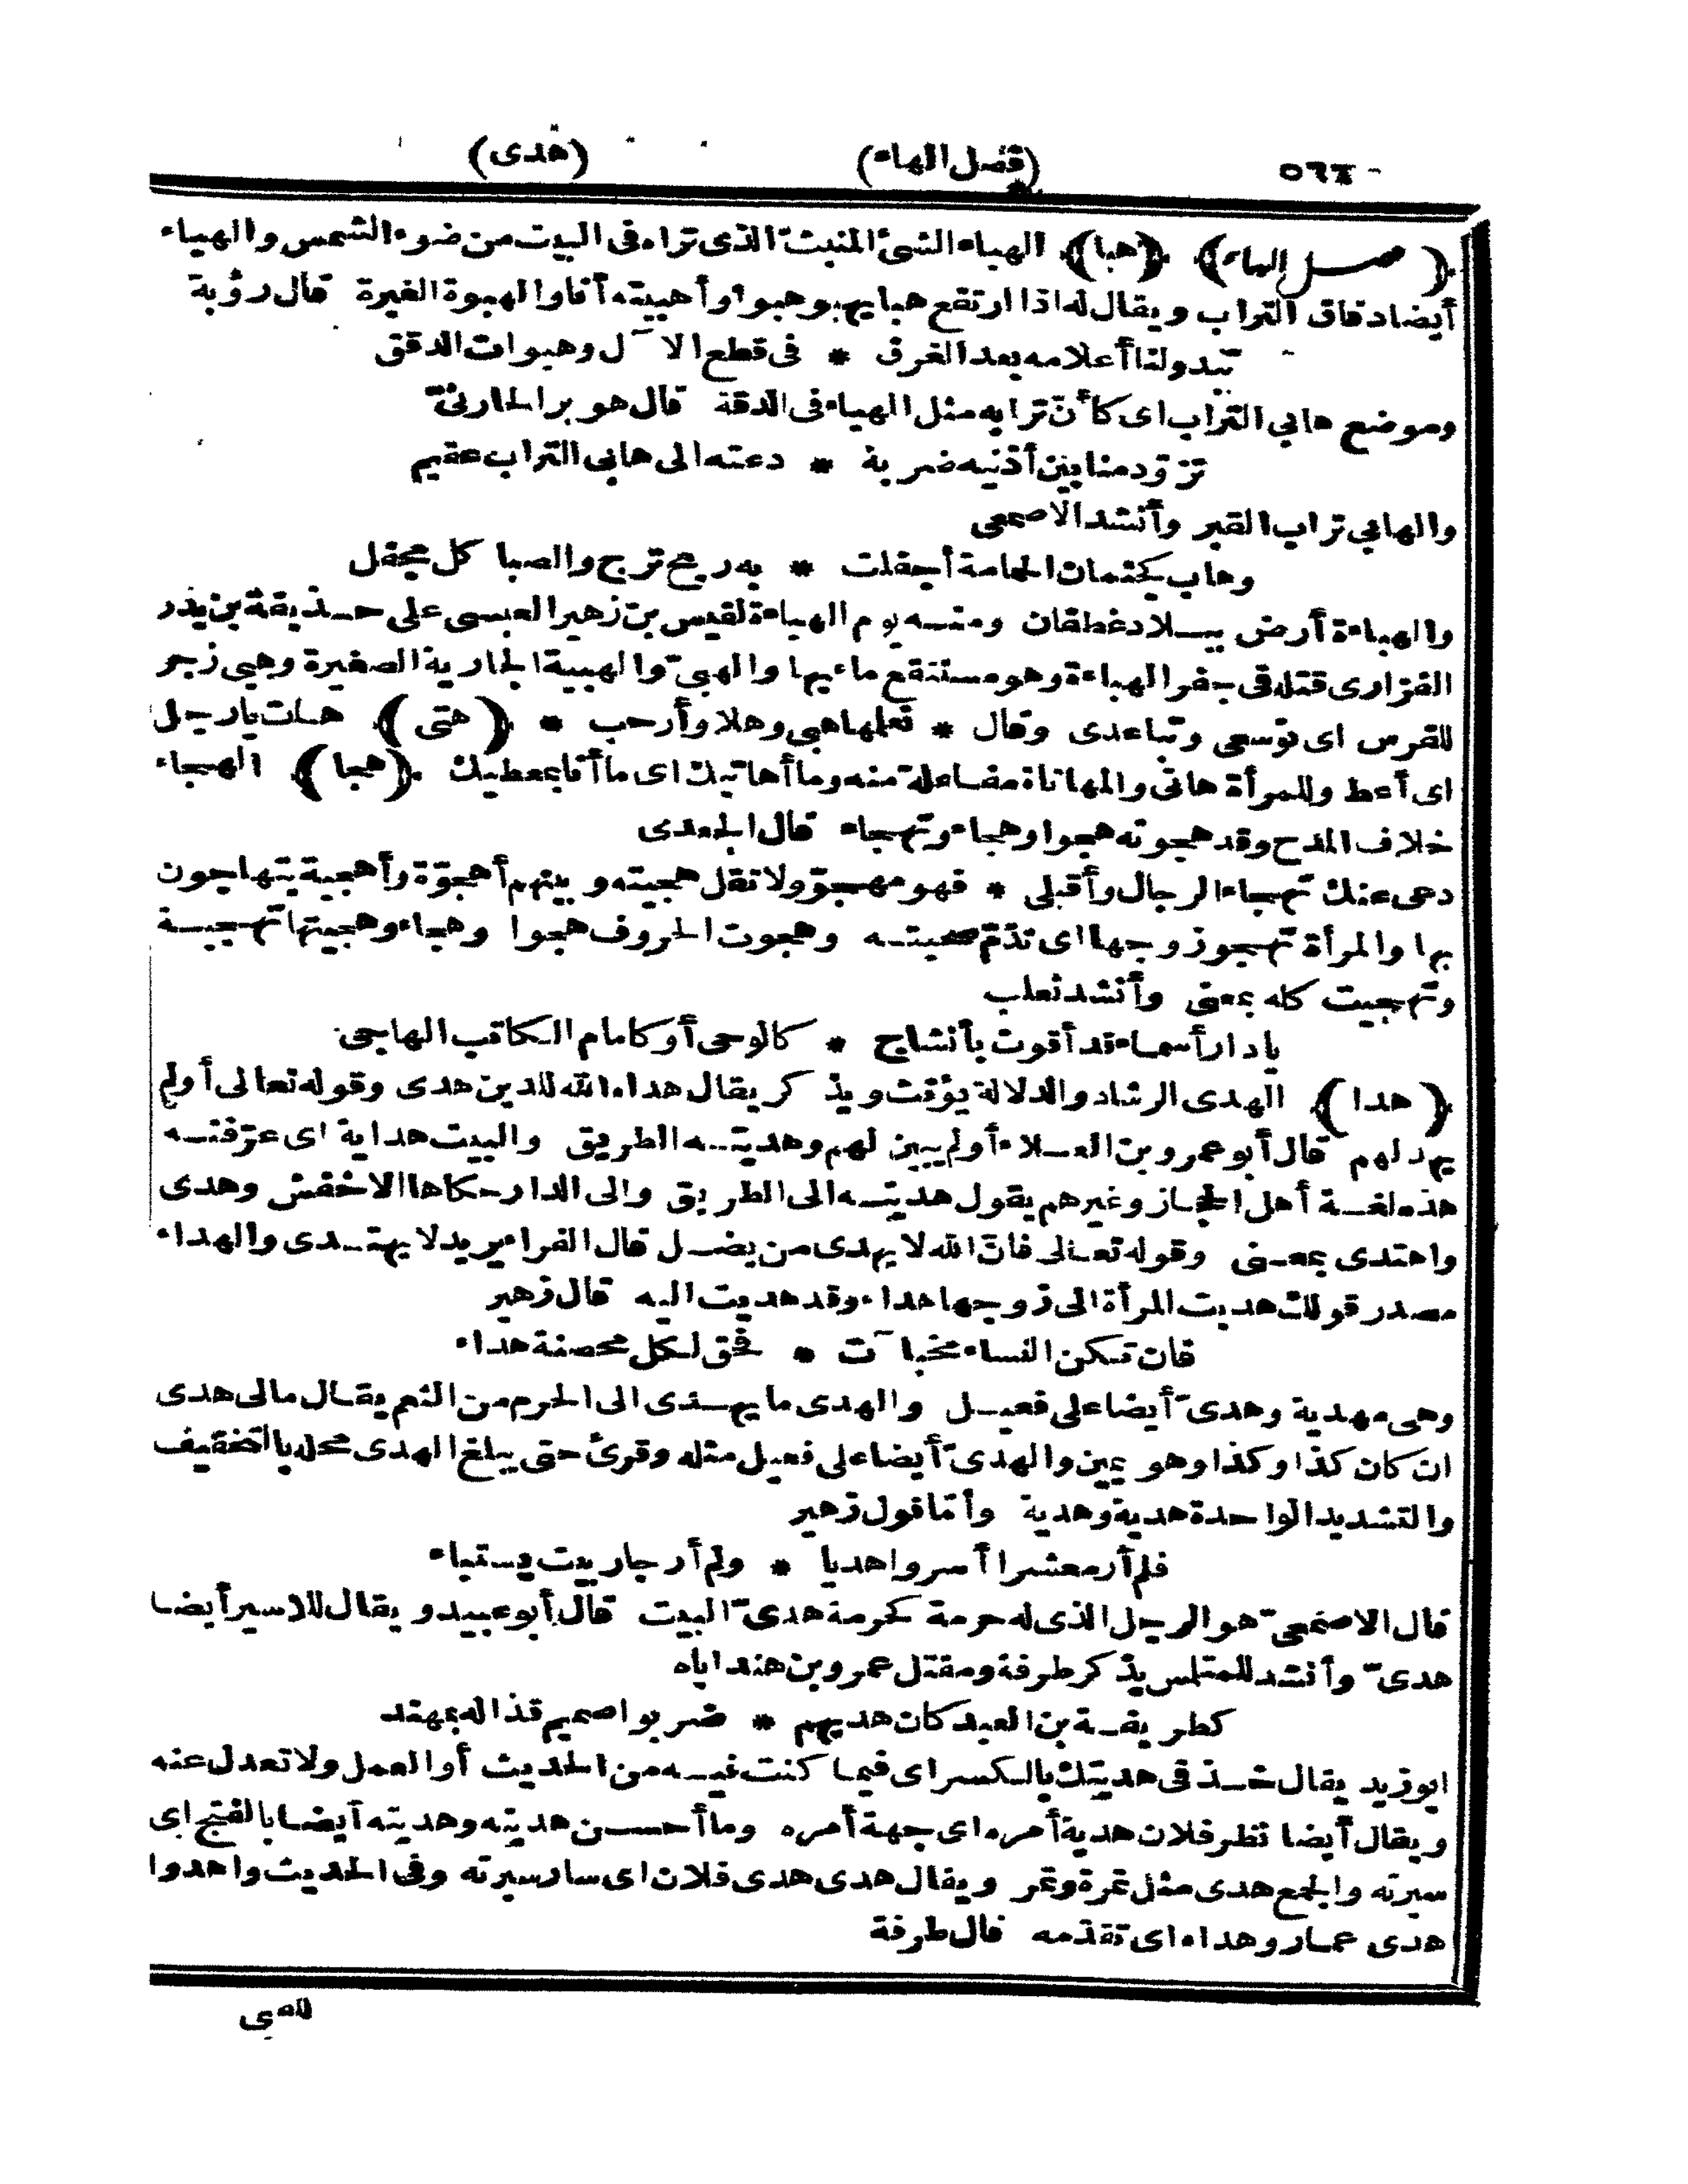 ٥٦٤ (فصل الهاء) (هدى)
﴿فصل الهاء﴾ ﴿هبا﴾ الهباء الشئ المنبث الذى تراه فى البيت من ضوء الشمس والهباء
أيضا دقاق التراب ويقال له اذا ارتفع هبا يهبو هبوا وأهبيته أنا والهبوة الغبرة قال رؤبة
تبدو لنا أعلامه بعد الغرق * فى قطع الآل وهبوات الدقق
وموضع هابي التراب اى كأنّ ترابه مثل الهباء فى الدقة قال هوبر الحارثىّ
تزوّد منا بين أذنيه ضربة * دعته الى هابى التراب عقيم
والهابي تراب القبر وأنشد الاصمعى
وهاب كجثمان الحمامة أجفلت * به ريح ترج والصبا كل مجفل
والهباءة أرض ببلاد غطفان ومنه يوم الهباءة لقيس بن زهير العبسى على حذيفة بن بدر
الفزارى قتله فى جفر الهباءة وهو مستنقع ماء بها والهبيّ والهبية الجارية الصغيرة وهبى زجر
للفرس اى توسعى وتباعدى وقال * نعلمها هبى وهلا وأرحب * ﴿هتى﴾ هات يا رجل
اى أعط وللمرأة هاتى والمهاتاة مفاعلة منه وما أهاتيك اى ما أنا بمعطيك ﴿هجا﴾ الهجاء
خلاف المدح وقد هجوته هجوا وهجاء وتهجاء قال الجعدى
دعى عنك تهجاء الرجال وأقبلى * فهو مهجوّ ولا تقل هجيته وبينهم أهجوّة وأهجية يتهاجون
بها والمرأة تهجو زوجها اى تذمّ صحبته وهجوت الحروف هجوا وهجاء وهجيتها تهجية
وتهجيت كله بمعنى وأنشد ثعلب
يا دار أسماء قد أقوت بأنشاج * كالوحى أو كامام الكاتب الهاجى
﴿هدا﴾ الهدى الرشاد والدلالة يؤنث ويذكر يقال هداه الله للدين هدى وقوله تعالى أولم
يهد لهم قال أبو عمرو بن العلاء أولم يبين لهم وهديته الطريق والبيت هداية اى عرّفته
هذه لغة أهل الحجاز وغيرهم يقول هديته الى الطريق والى الدار حكاها الاخفش وهدى
واهتدى بمعنى وقوله تعالى فانّ الله لا يهدى من يضل قال الفراء يريد لا يهتدى والهداء
مصدر قولك هديت المرأة الى زوجها هداء وقد هديت اليه قال زهير
فان تكن النساء مخبآت * فحق لكل محصنة هداء
وهى مهدية وهدىّ أيضا على فعيل والهدى ما يهدى الى الحرم من النعم يقال مالى هدى
ان كان كذا وكذا وهو يمين والهدىّ أيضا على فعيل مثله وقرئ حتى يبلغ الهدى محله بالتخفيف
والتشديد الواحدة هدية وهدية وأمّا قول زهير
فلم أر معشرا أسروا هديا * ولم أر جار بيت يستباء
قال الاصمعىّ هو الرجل الذى له حرمة كحرمة هدىّ البيت قال أبو عبيد ويقال للاسير أيضا
هدىّ وأنشد للمتلمس يذكر طرفة ومقتل عمرو بن هند اياه
كطريفة بن العبد كان هديهم * ضربوا صميم قذاله بمهند
ابو زيد يقال خذ فى هديتك بالكسر اى فيما كنت فيه من الحديث أو العمل ولا تعدل عنه
ويقال أيضا نظر فلان هدية أمره اى جهة أمره وما أحسن هديته وهديته أيضا بالفتح اى
سيرته والجمع هدى مثل تمرة وتمر ويقال هدى هدى فلان اى سار سيرته وفى الحديث واهدوا
هدى عمار وهداه اى تقدّمه قال طرفة
للفتى